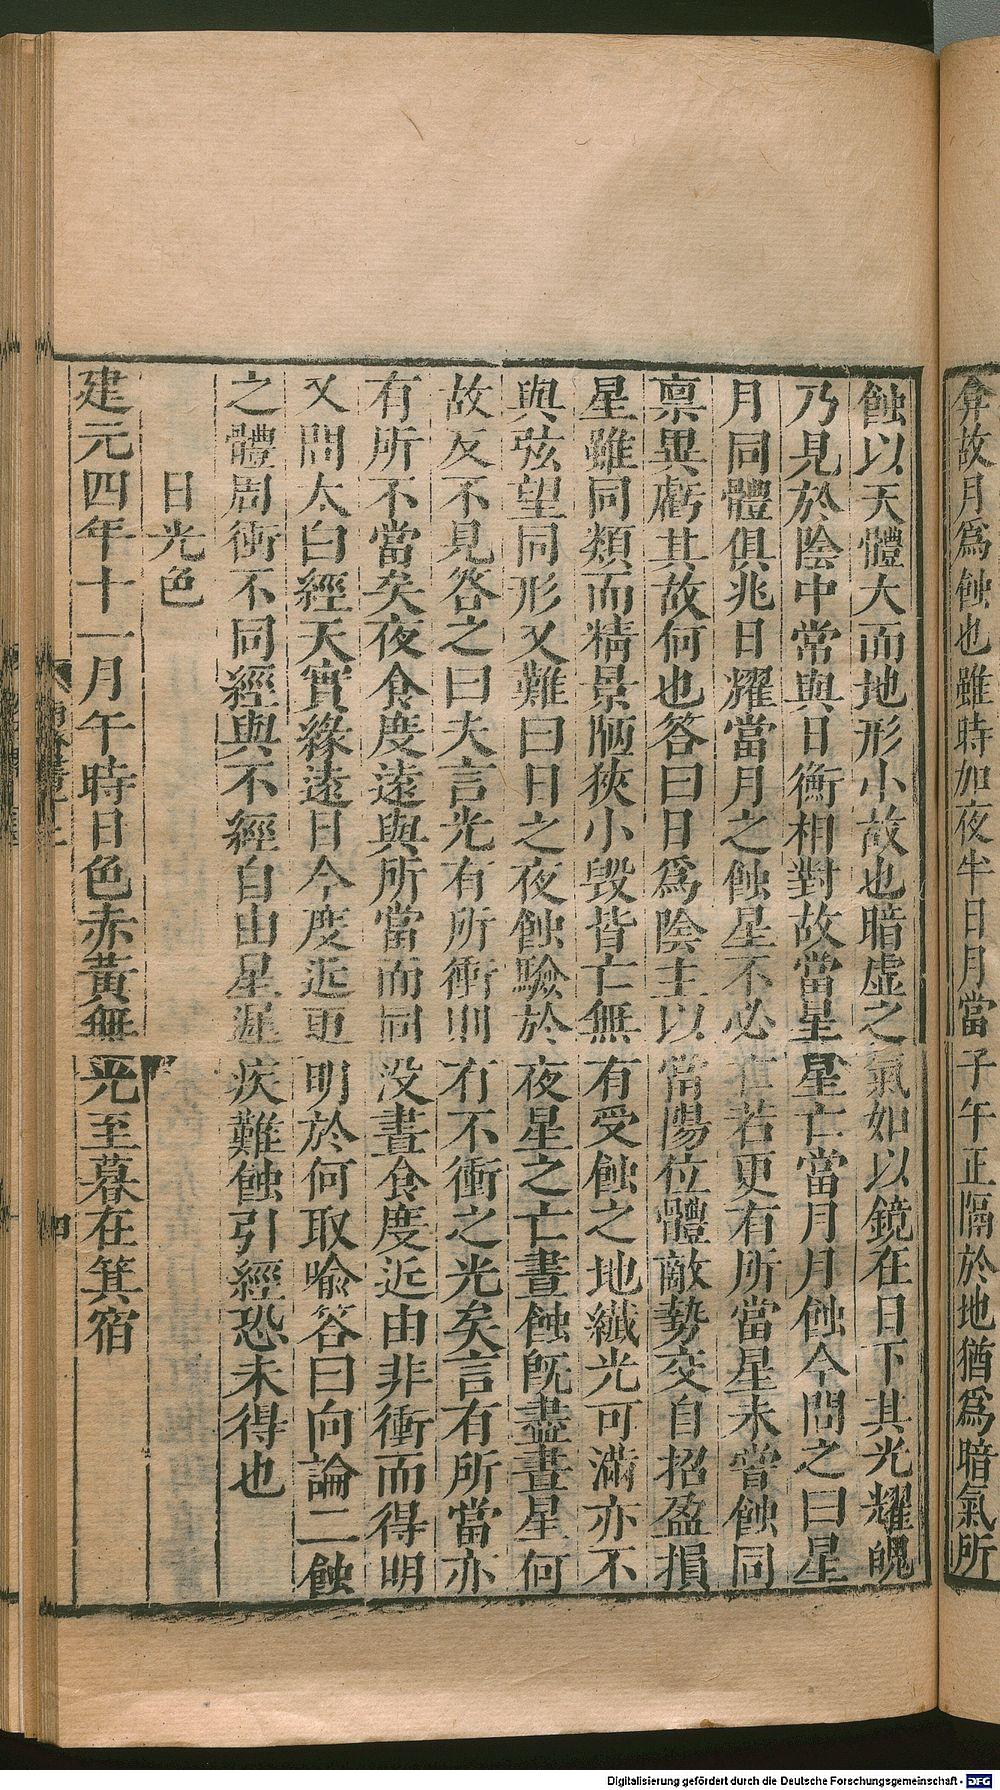 弇故月爲蝕也雖時加夜半日月當子午正隔於地猶爲暗氣所
蝕以天體大而地形小故也暗虛之氣如以鏡在日下其光耀魄
乃見於陰中常與日衡相對故當星星亡當月月蝕今問之曰星
月同體俱兆日耀當月之蝕星不必亡若更有所當星未嘗蝕同
稟異虧其故何也答曰日爲陰主以當陽位體敵勢交自招盈損
星雖同類而精景陋狹小毀皆亡無有受蝕之地纖光可滿亦不
與弦望同形又難曰日之夜蝕驗於夜星之亡晝蝕既盡晝星何
故反不見答之曰夫言光有所衝則有不衝之光矣言有所當亦
有所不當矣夜食度遠與所當而同没晝食度近由非衝而得明
又問太白經天實緣遠日今度近更明於何取喻答曰向論二蝕
之體周衝不同經與不經自由星遲疾難蝕引經恐未得也
日光色
建元四年十一月午時日色赤黃無光至暮在箕宿
四
Digitalisierung gefördert durch die Deutsche Forschungsgemeinschaft - DFG